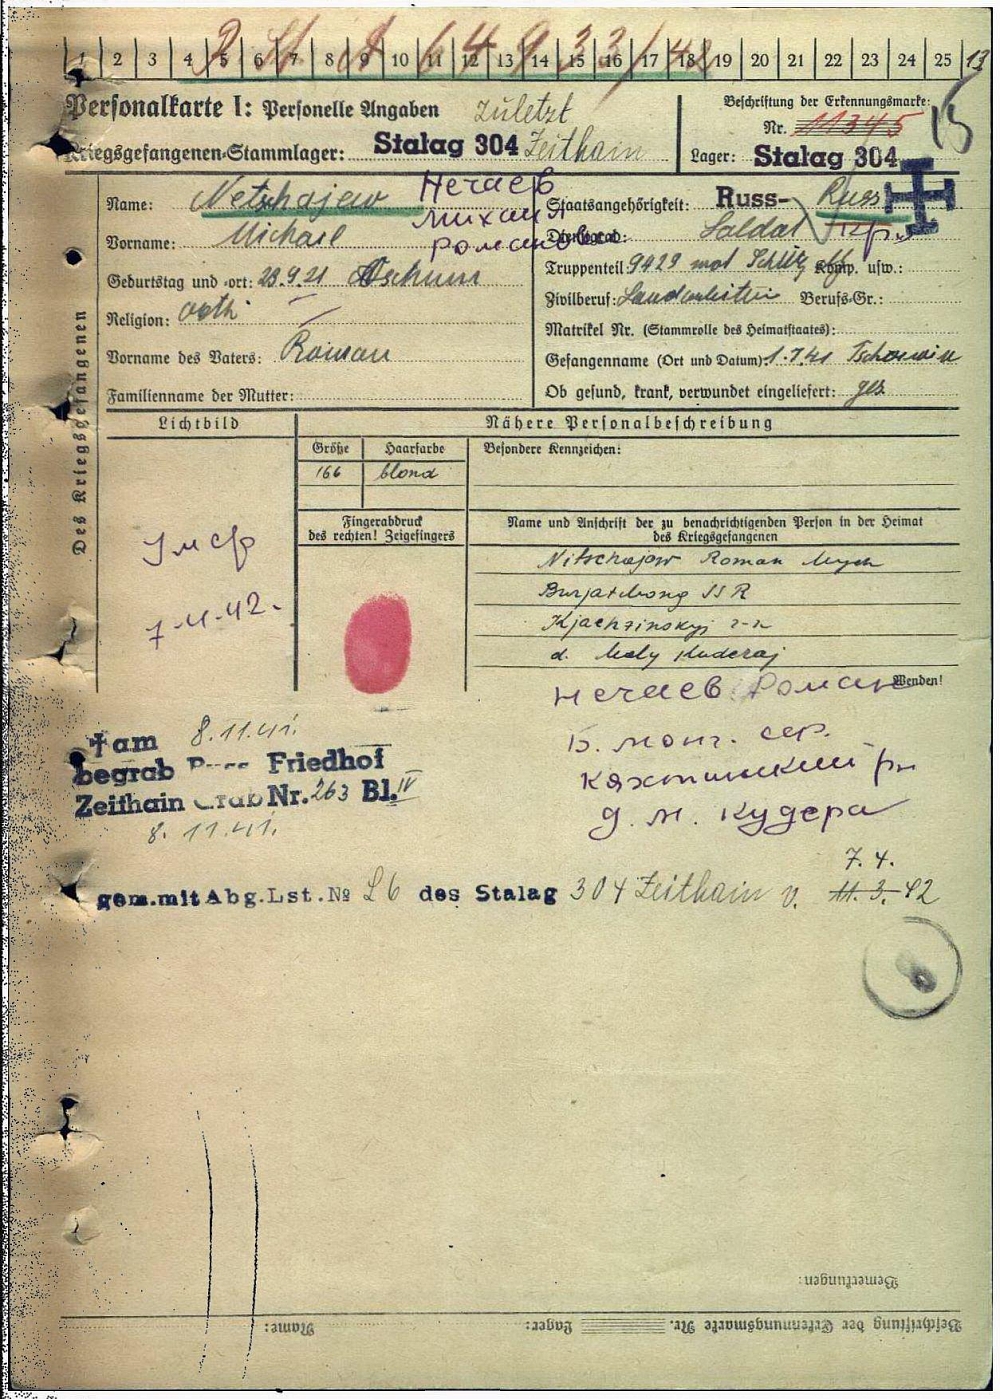 1 2 3 4 5 6 7 8 9 10 11 12 13 14 15 16 17 18 19 20 21 22 23 24 25
Personalkarte I: Personelle Angaben zuletzt
Kriegsgefangenen-Stammlager: Stalag 304 Zeithain
Beschriftung der Erkennungsmarke:
Nr. 11345
Lager: Stalag 304
15
Des Kriegsgefangenen
Name: Netschajew
Нечаев
Vorname: Michael
Михаил
Романович
Geburtstag und -ort: 23.9.21
Religion: orth
Vorname des Vaters: Roman
Familienname der Mutter:
Staatsangehörigkeit: Russ- Russ
Dienstgrad: Soldat
Truppenteil: 9429 mot Schütz Komp. usw.:
Zivilberuf: Landarbeiter Berufs-Gr.:
Matrikel Nr. (Stammrolle des Heimatstaates):
Gefangenname (Ort und Datum): 1.7.41
Ob gesund, krank, verwundet eingeliefert: ges.
Lichtbild
Nähere Personalbeschreibung
Größe Haarfarbe Besondere Kennzeichen:
166 blond
Fingerabdruck
des rechten! Zeigefingers
Name und Anschrift der zu benachrichtigenden Person in der Heimat
des Kriegsgefangenen
Nitschajow Roman
Burjatmong SSR
Kjachzinskyj r-n
d. Maly Kuderaj
Wenden!
Умер
7-11-42.
Нечаев Роман
Б. монг. сср.
Кяхтинский рн
д. м. Кудера
† am 8.11.41.
begrab Russ Friedhof
Zeithain Grab Nr. 263 Bl. IV
8.11.41.
7.4.
gem. mit Abg. Lst. № 26 des Stalag 304 Zeithain v. 11.3.42
Bemerkungen:
Beschriftung der Erkennungsmarke Nr. Lager: Name: